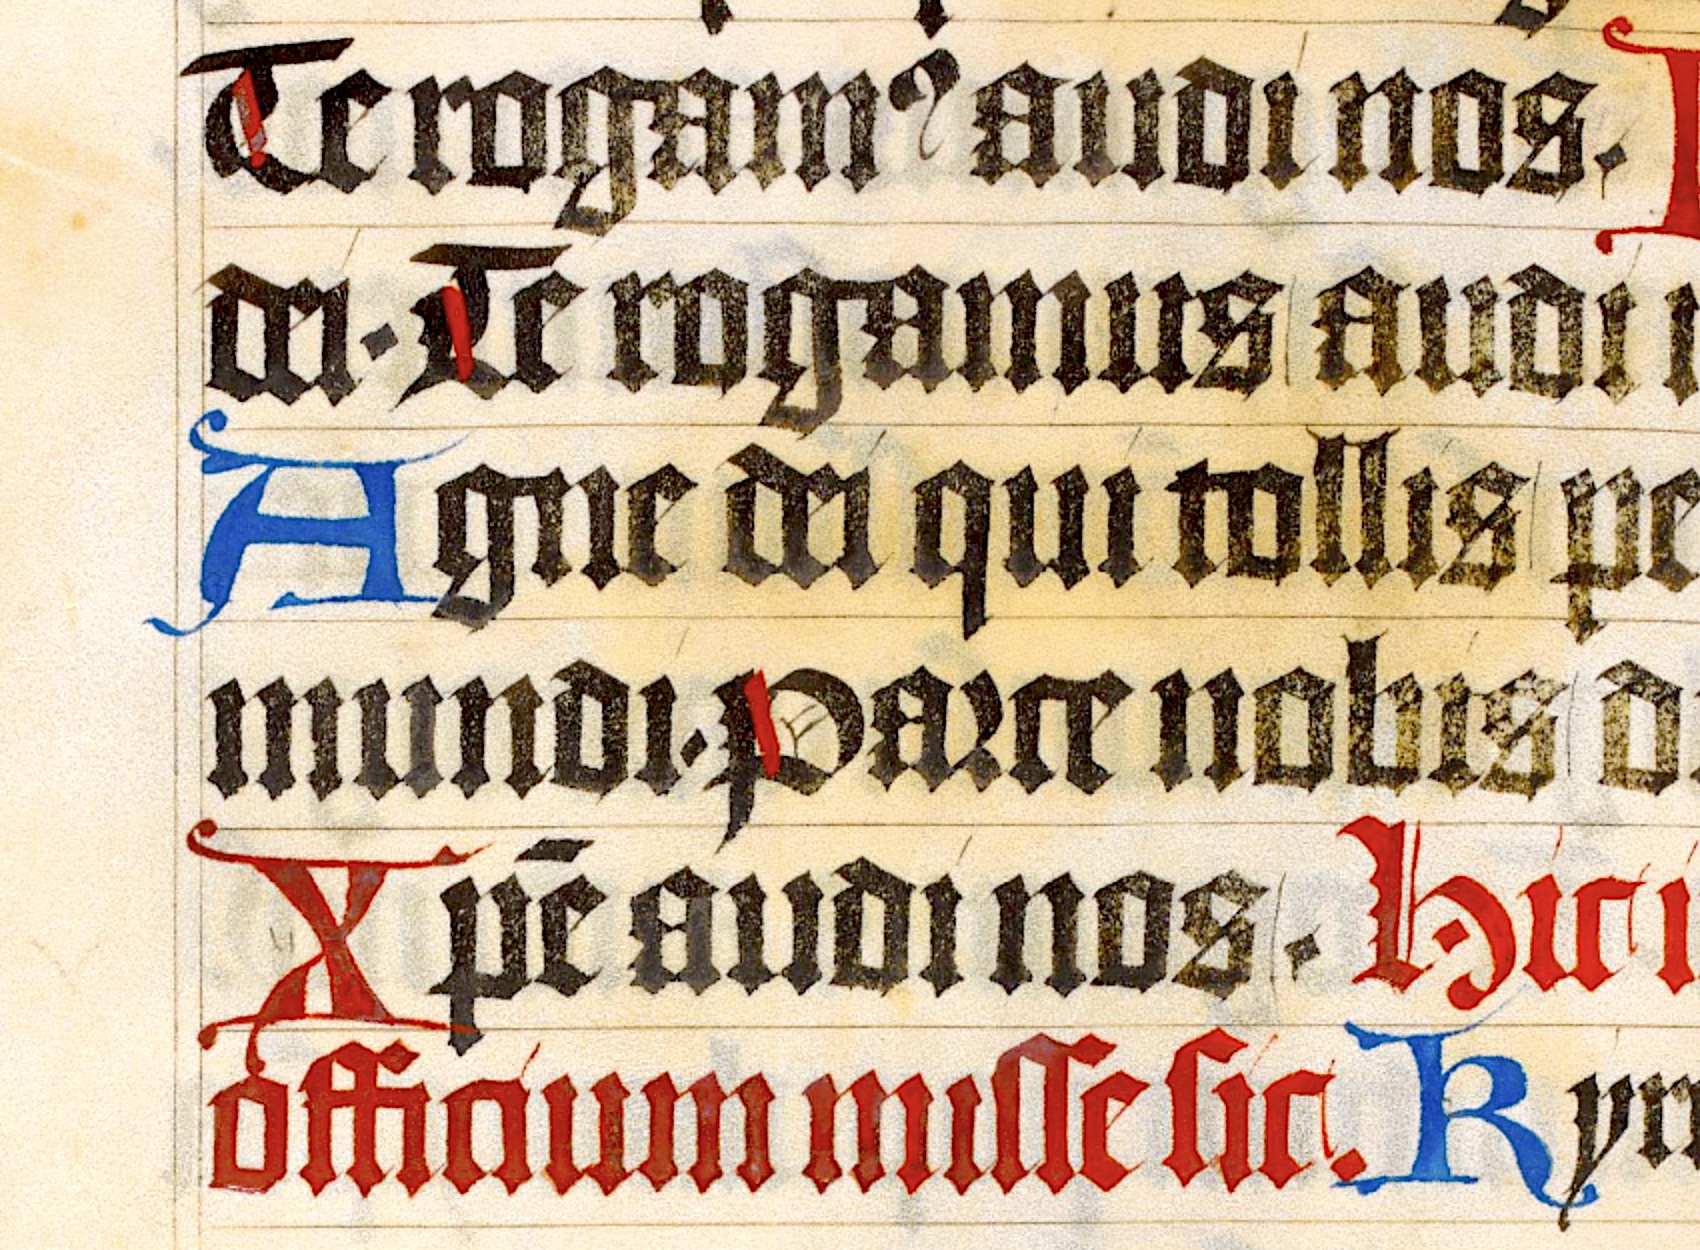 Te rogamꝰ audi nos.
dei. Te rogamus audi
Agne dei qui tollis pe
mundi. Parce nobis d
Xpē audi nos. Hic i
officium misse sic. Kyri